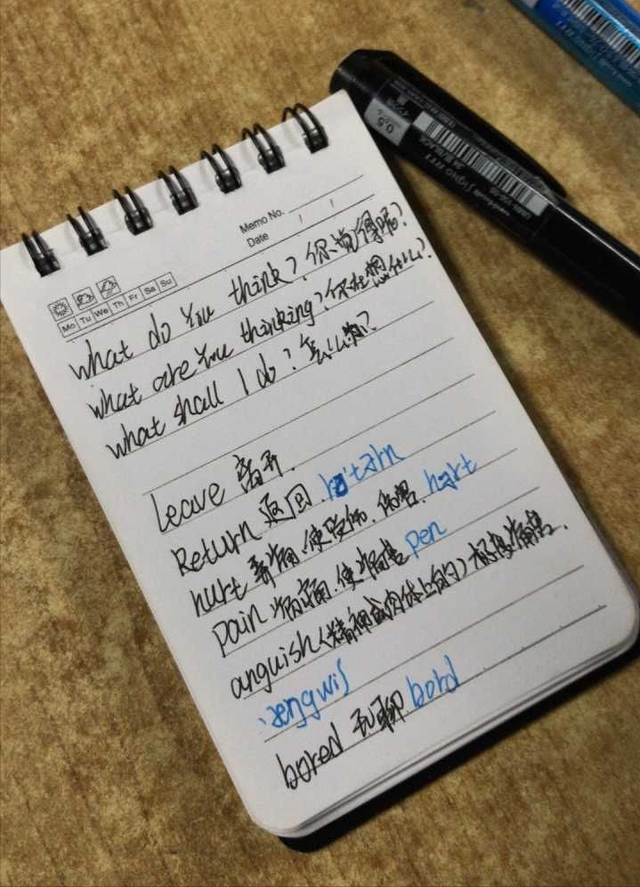 Memo No.
Date / /
Mo Tu We Th Fr Sa Su
what do you think? 你觉得呢?
what are you thinking? 你在想什么?
what shall I do? 怎么办?
Leave 离开.
Return 返回. tɜln
hurt 弄痛.使受伤. 伤害. hɜrt
pain 疼痛.使痛苦 pen
anguish(精神或肉体上的)极度痛苦.
ˈæŋgwiʃ
bored 无聊 bord
0.5